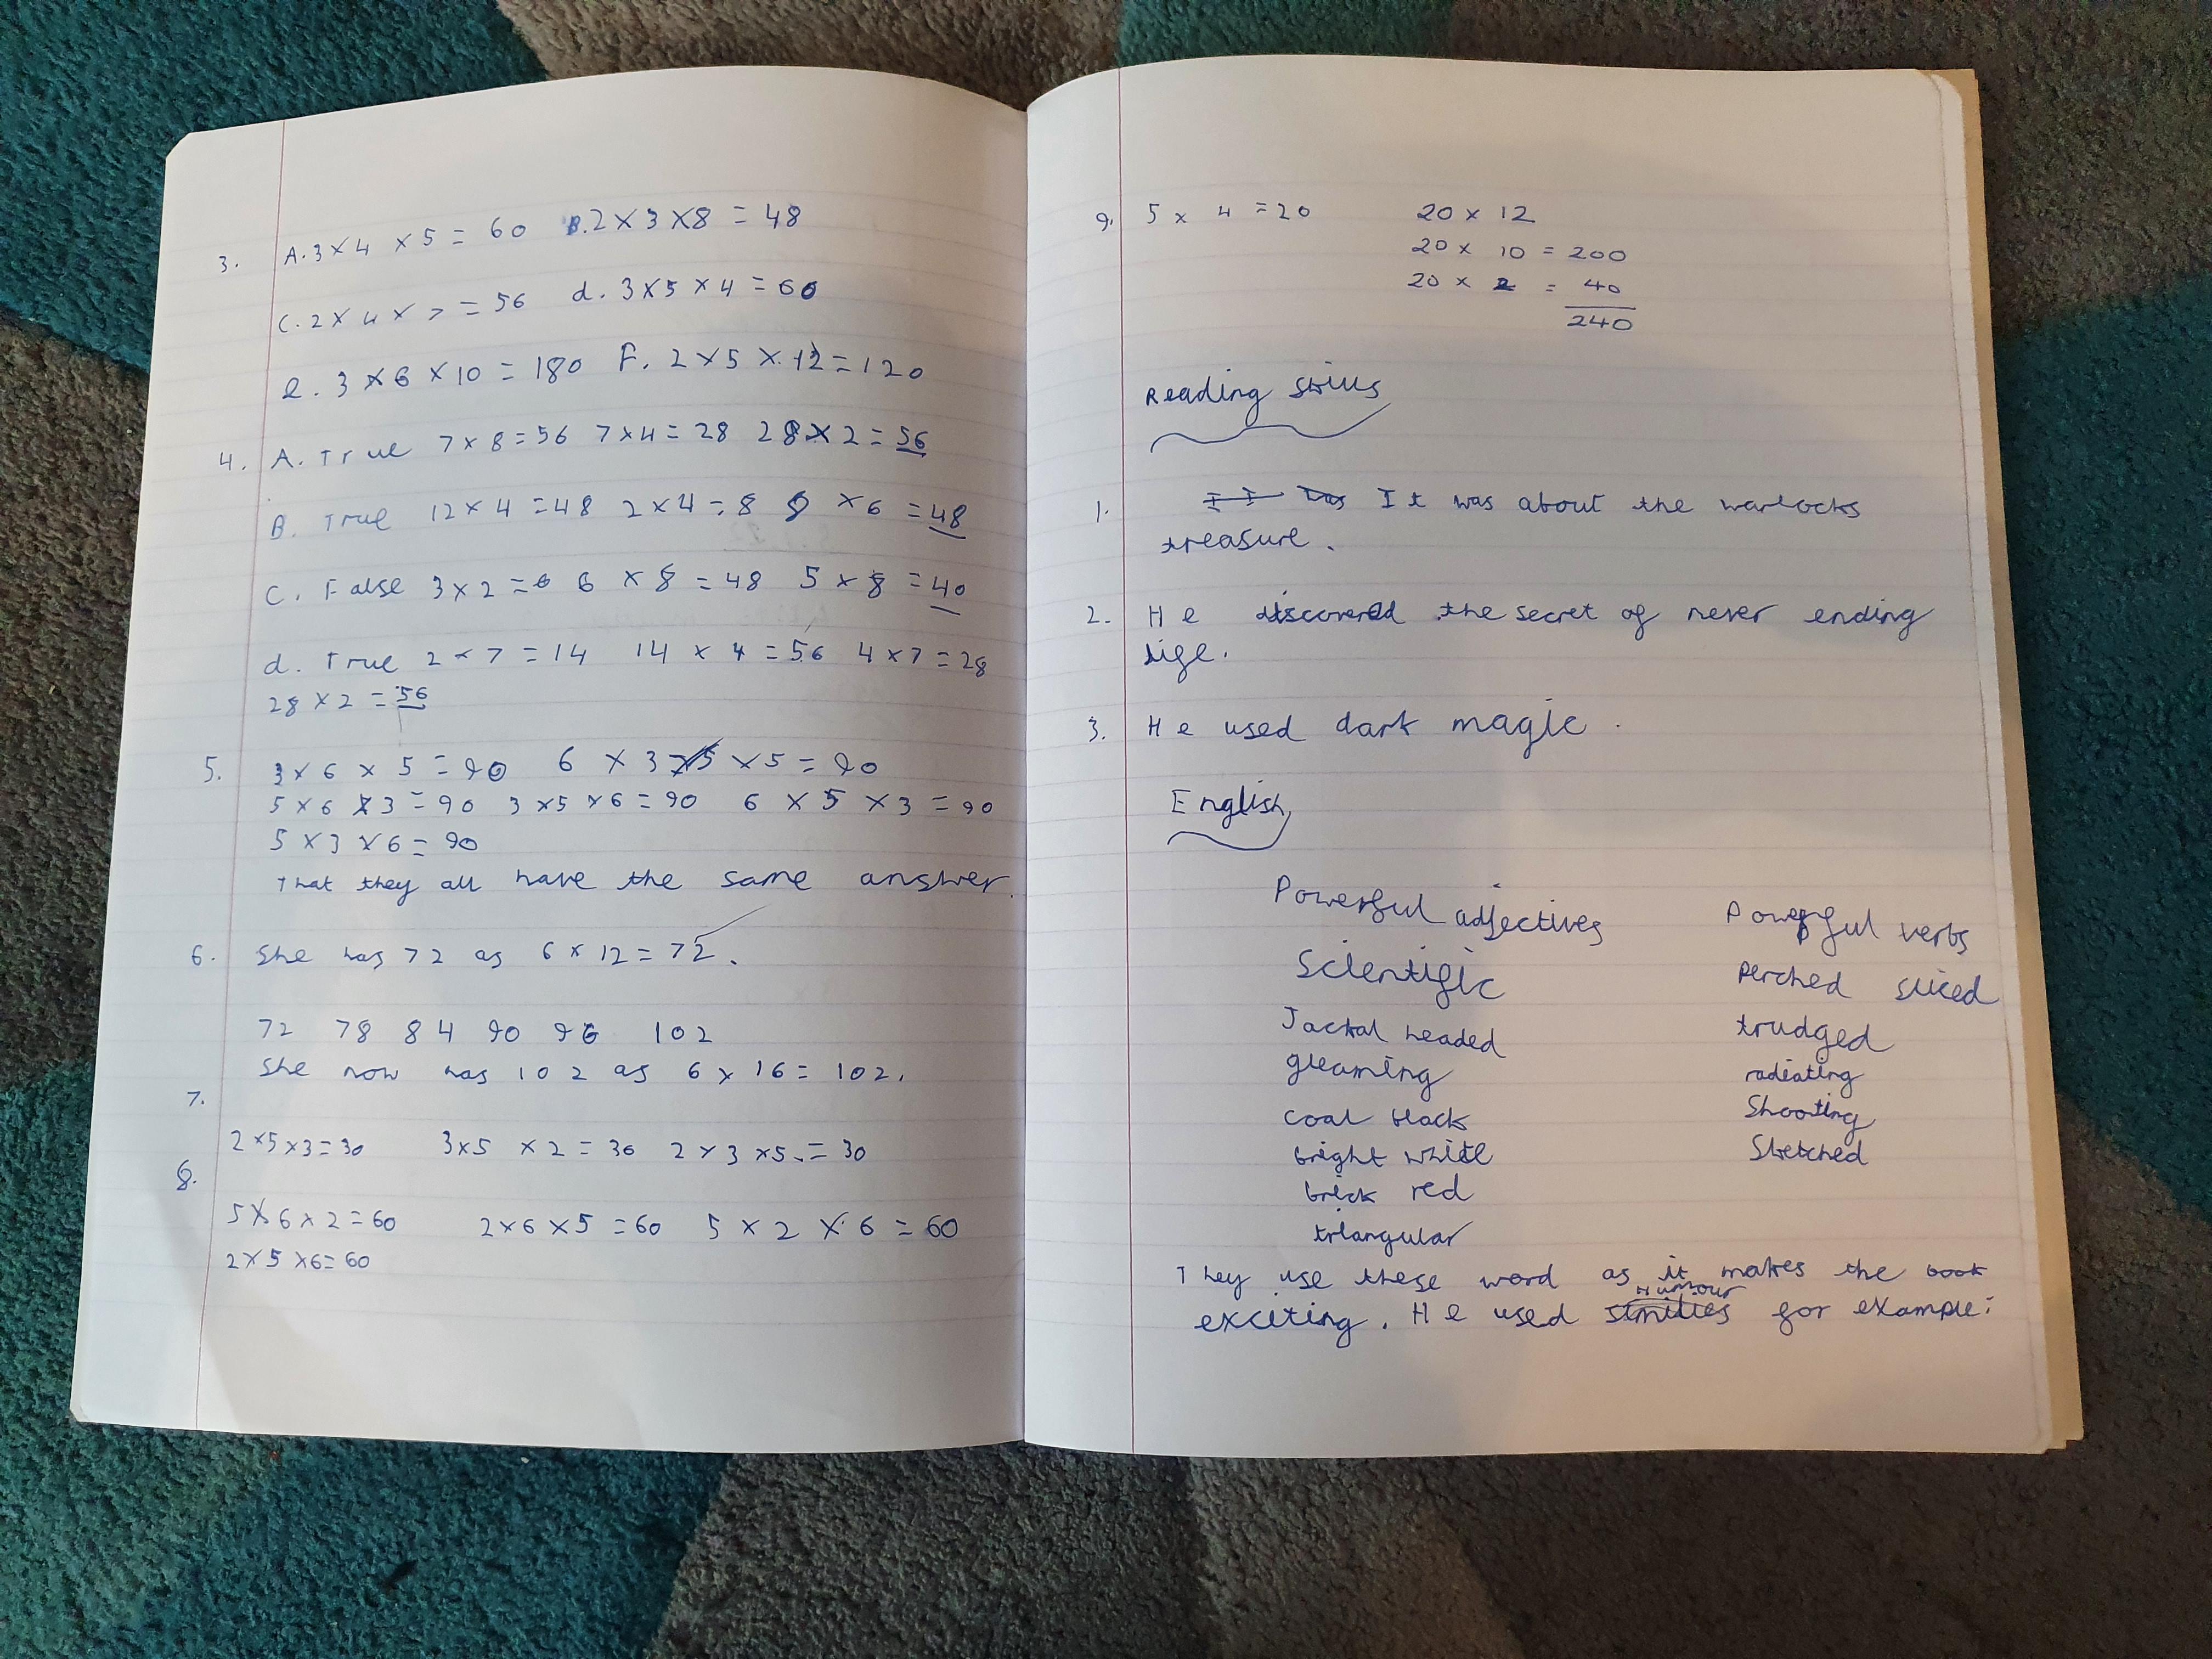 3. A. 3 × 4 × 5 = 60 B. 2 × 3 × 8 = 48
C. 2 × 4 × 7 = 56 d. 3 × 5 × 4 = 60
e. 3 × 6 × 10 = 180 F. 2 × 5 × 12 = 120
4. A. True 7 × 8 = 56 7 × 4 = 28 28 × 2 = 56
B. True 12 × 4 = 48 2 × 4 = 8 8 × 6 = 48
C. False 3 × 2 = 6 6 × 8 = 48 5 × 8 = 40
d. True 2 × 7 = 14 14 × 4 = 56 4 × 7 = 28
28 × 2 = 56
5. 3 × 6 × 5 = 90 6 × 3 × 5 = 90
5 × 6 × 3 = 90 3 × 5 × 6 = 90 6 × 5 × 3 = 90
5 × 3 × 6 = 90
That they all have the same answer.
6. She has 72 as 6 × 12 = 72.
72 78 84 90 96 102
She now has 102 as 6 × 16 = 102.
7.
2 × 5 × 3 = 30 3 × 5 × 2 = 30 2 × 3 × 5 = 30
8.
5 × 6 × 2 = 60 2 × 6 × 5 = 60 5 × 2 × 6 = 60
2 × 5 × 6 = 60
9. 5 × 4 = 20 20 × 12
20 × 10 = 200
20 × 2 = 40
240
Reading skills
1. It was about the warlocks
treasure.
2. He discovered the secret of never ending
life.
3. He used dark magic.
English
Powerful adjectives Powerful verbs
Scientific Perched sliced
Jackal headed trudged
gleaming radiating
coal black Shooting
bright white Stretched
brick red
triangular
They use these word as it makes the book
exciting. He used Humour for example: